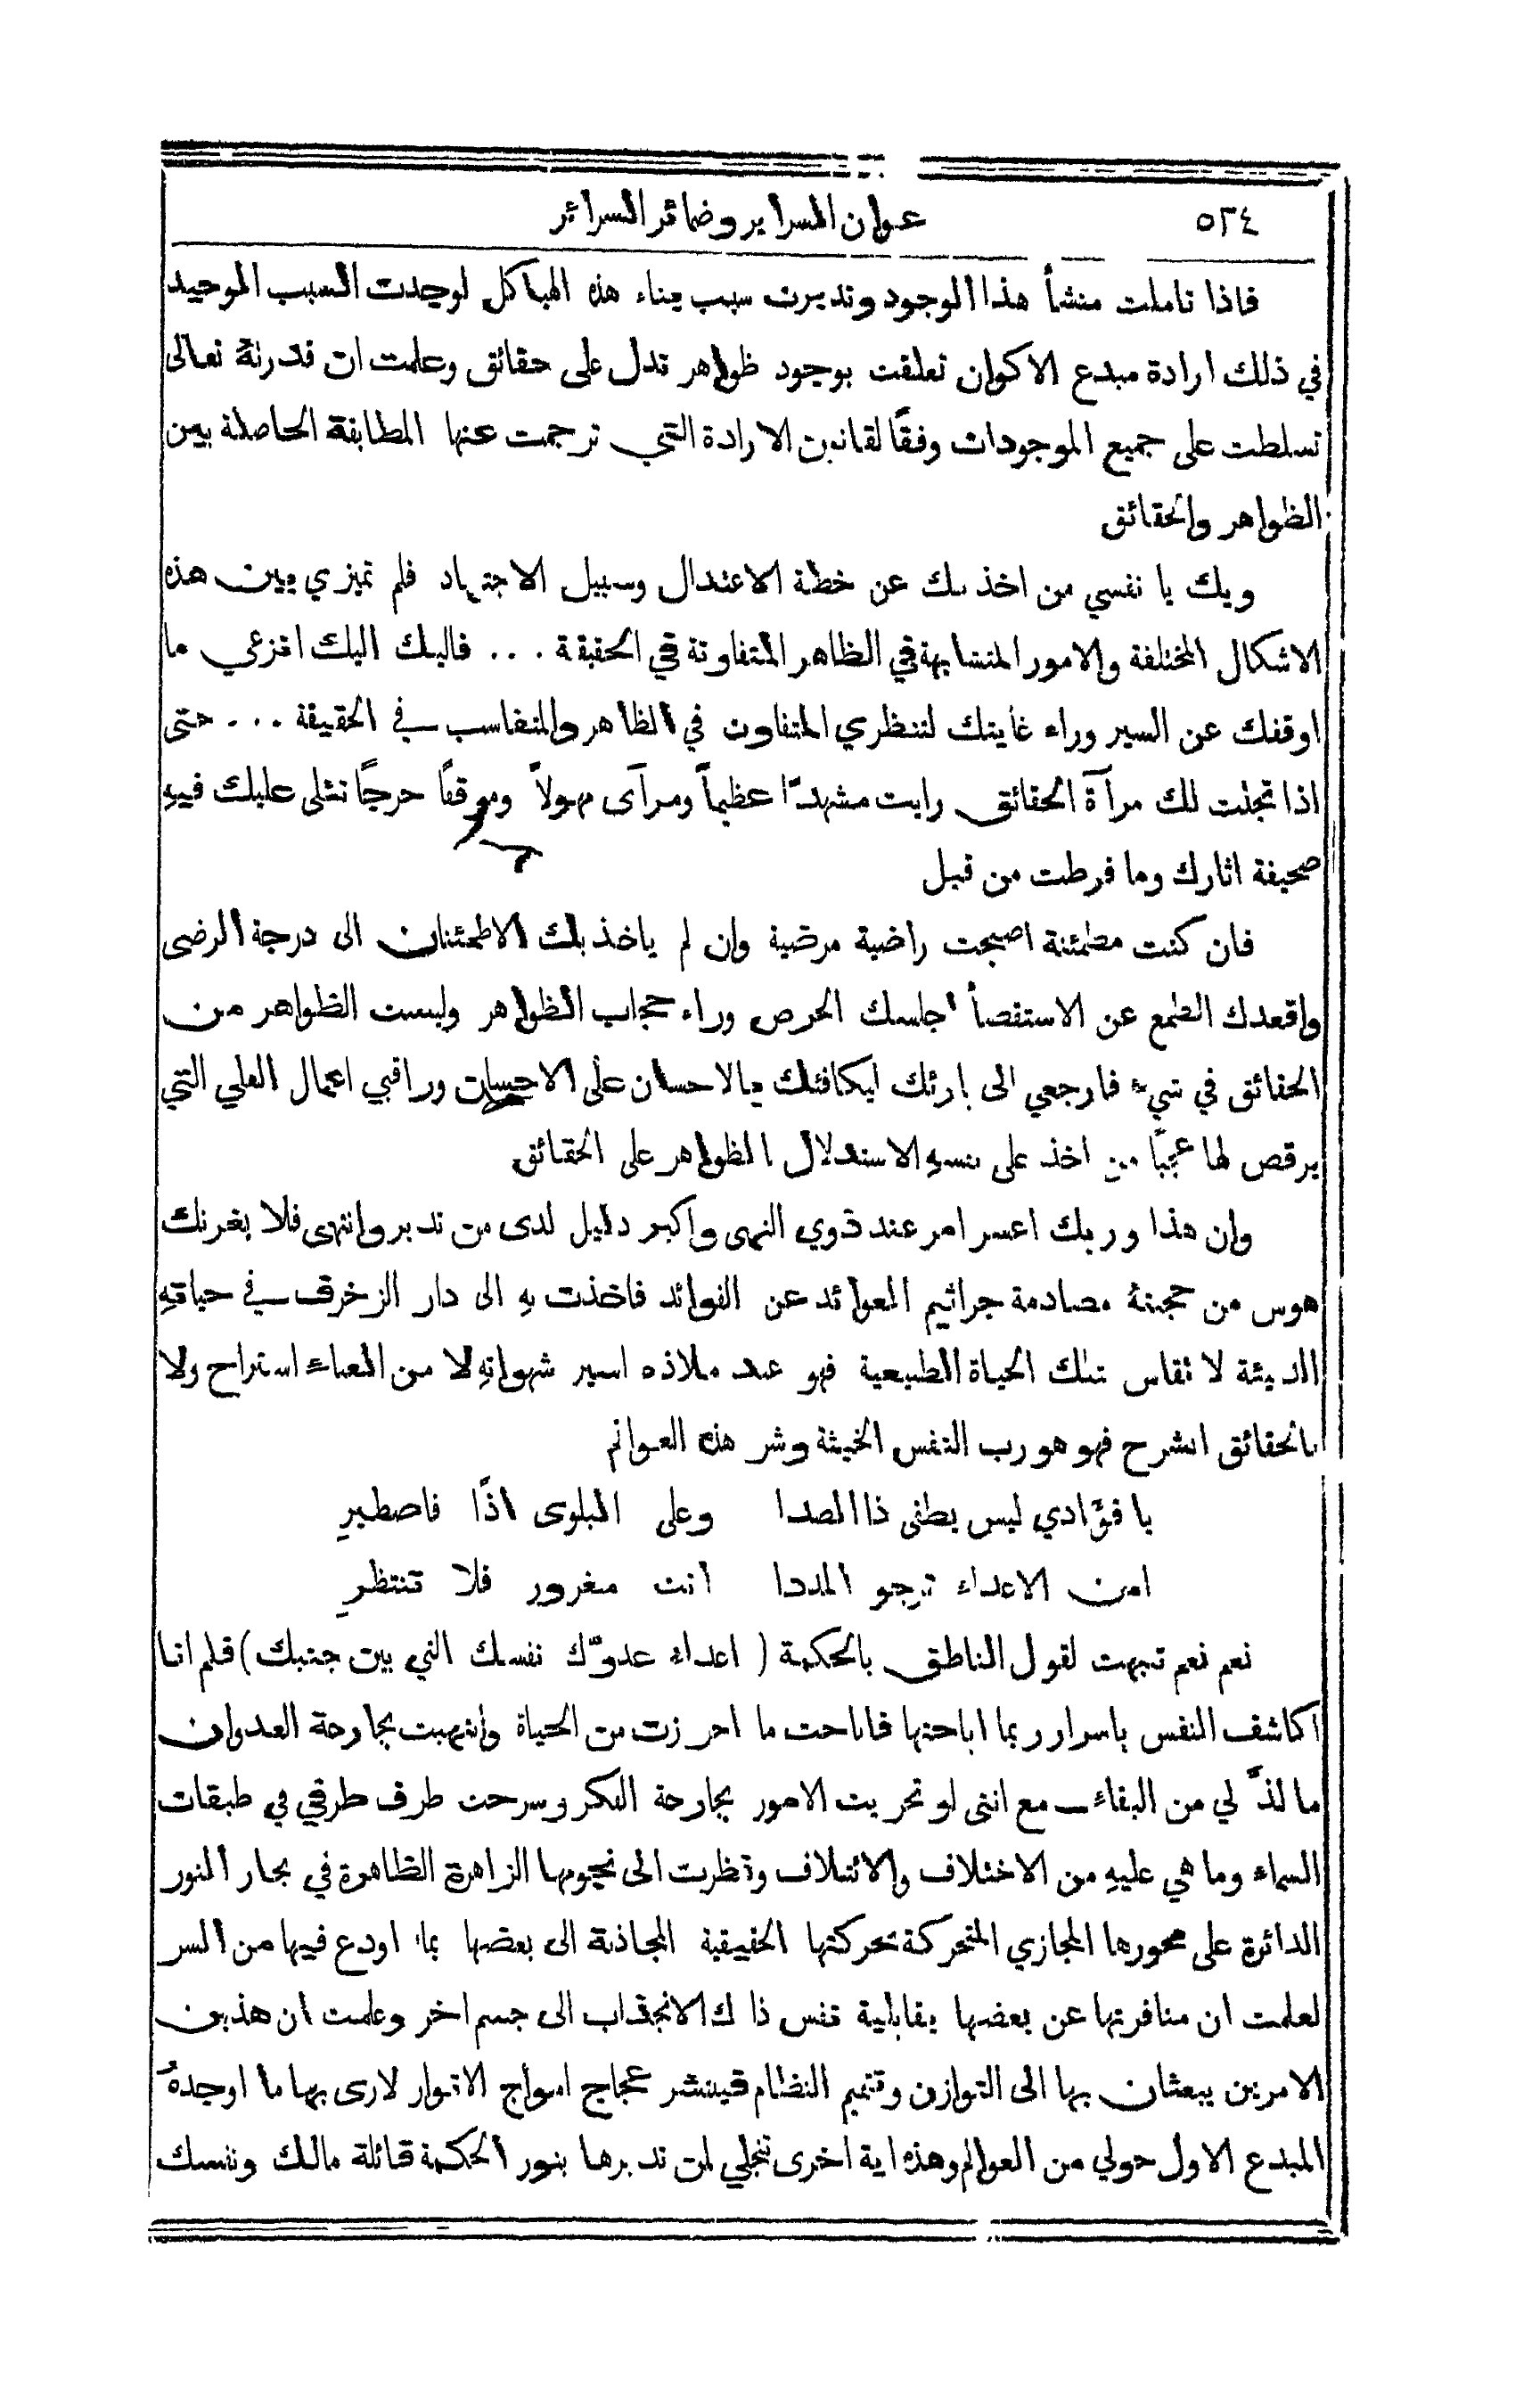 ٥٣٤
عنوان المسرايروضمائر السرائر
فاذا تاملت منشأ هذا الوجود وتدبرت سبب بناء هذه الهياكل لوجدت السبب الوحيد
في ذلك ارادة مبدع الاكوان تعلقت بوجود ظواهر تدل على حقائق وعلمت ان قدرتهُ تعالى
تسلطت على جميع الموجودات وفقًا لقانون الارادة التي ترجمت عنها المطابقة الحاصلة بين
الظواهر والحقائق
ويك يا نفسي من اخذ بك عن خطة الاعتدال وسبيل الاجتهاد فلم تميزي بين هذه
الاشكال المختلفة والامور المتشابهة في الظاهر المتفاوتة في الحقيقة ... فاليك اليك افزعي ما
اوقفك عن السير وراء غايتك لتنظري المتفاوت في الظاهر والمتناسب في الحقيقة ... حتى
اذا تجلت لك مرآة الحقائق رايت مشهدًا عظيمًا ومرآى مهولاً وموقفًا حرجًا تتلى عليك فيهِ
صحيفة اثارك وما فرطت من قبل
فان كنت مطمئنة اصبحت راضية مرضية وان لم ياخذ بك الاطمئنان الى درجة الرضى
واقعدك الطمع عن الاستقصأ اجلسك الحرص وراء حجاب الظواهر وليست الظواهر من
الحقائق في شيء فارجعي الى بارئك ليكافئك بالاحسان على الاحسان وراقبي اعمال العلي التي
يرقص لها عجبًا من اخذ على نفسهِ الاستدلال بالظواهر على الحقائق
وان هذا وربك اعسر امر عند ذوي النهى واكبر دليل لدى من تدبر وانتهى فلا يغرنك
هوس من حجبتهُ مصادمة جراثيم العوائد عن الفوائد فاخذت بهِ الى دار الزخرف في حياتهِ
الدنيئة لا تقاس بتلك الحياة الطبيعية فهو عبد ملاذه اسير شهواتهِ لا من العناء استراح ولا
بالحقائق انشرح فهو هو رب النفس الخبيثة وشر هذه العوالم
يا فؤادي ليس يطفى ذا الصدا وعلى البلوى اذًا فاصطبرِ
امن الاعداء ترجو المددا انت مغرور فلا تنتظرِ
نعم نعم تنبهت لقول الناطق بالحكمة (اعداء عدوّك نفسك التي بين جنبيك) فلم انا
اكاشف النفس باسرار ربما اباحتها فاباحت ما احرزت من الحياة وانتهبت بجارحة العدوان
ما لذّ لي من البقاء مع انني لو تحريت الامور بجارحة الفكر وسرحت طرف طرفي في طبقات
السماء وما هي عليهِ من الاختلاف والائتلاف ونظرت الى نجومها الزاهرة الظاهرة في بحار النور
الدائرة على محورها المجازي المتحركة بحركتها الحقيقية المجاذبة الى بعضها بما اودع فيها من السر
لعلمت ان منافرتها عن بعضها بقابلية نفس ذلك الانجذاب الى جسم اخر وعلمت ان هذين
الامرين يبعثان بها الى التوازن وتتميم النظام فينشر عجاج امواج الانوار لارى بها ما اوجدهُ
المبدع الاول حولي من العوالم وهذه اية اخرى تنجلي لمن تدبرها بنور الحكمة قائلة مالك ونفسك